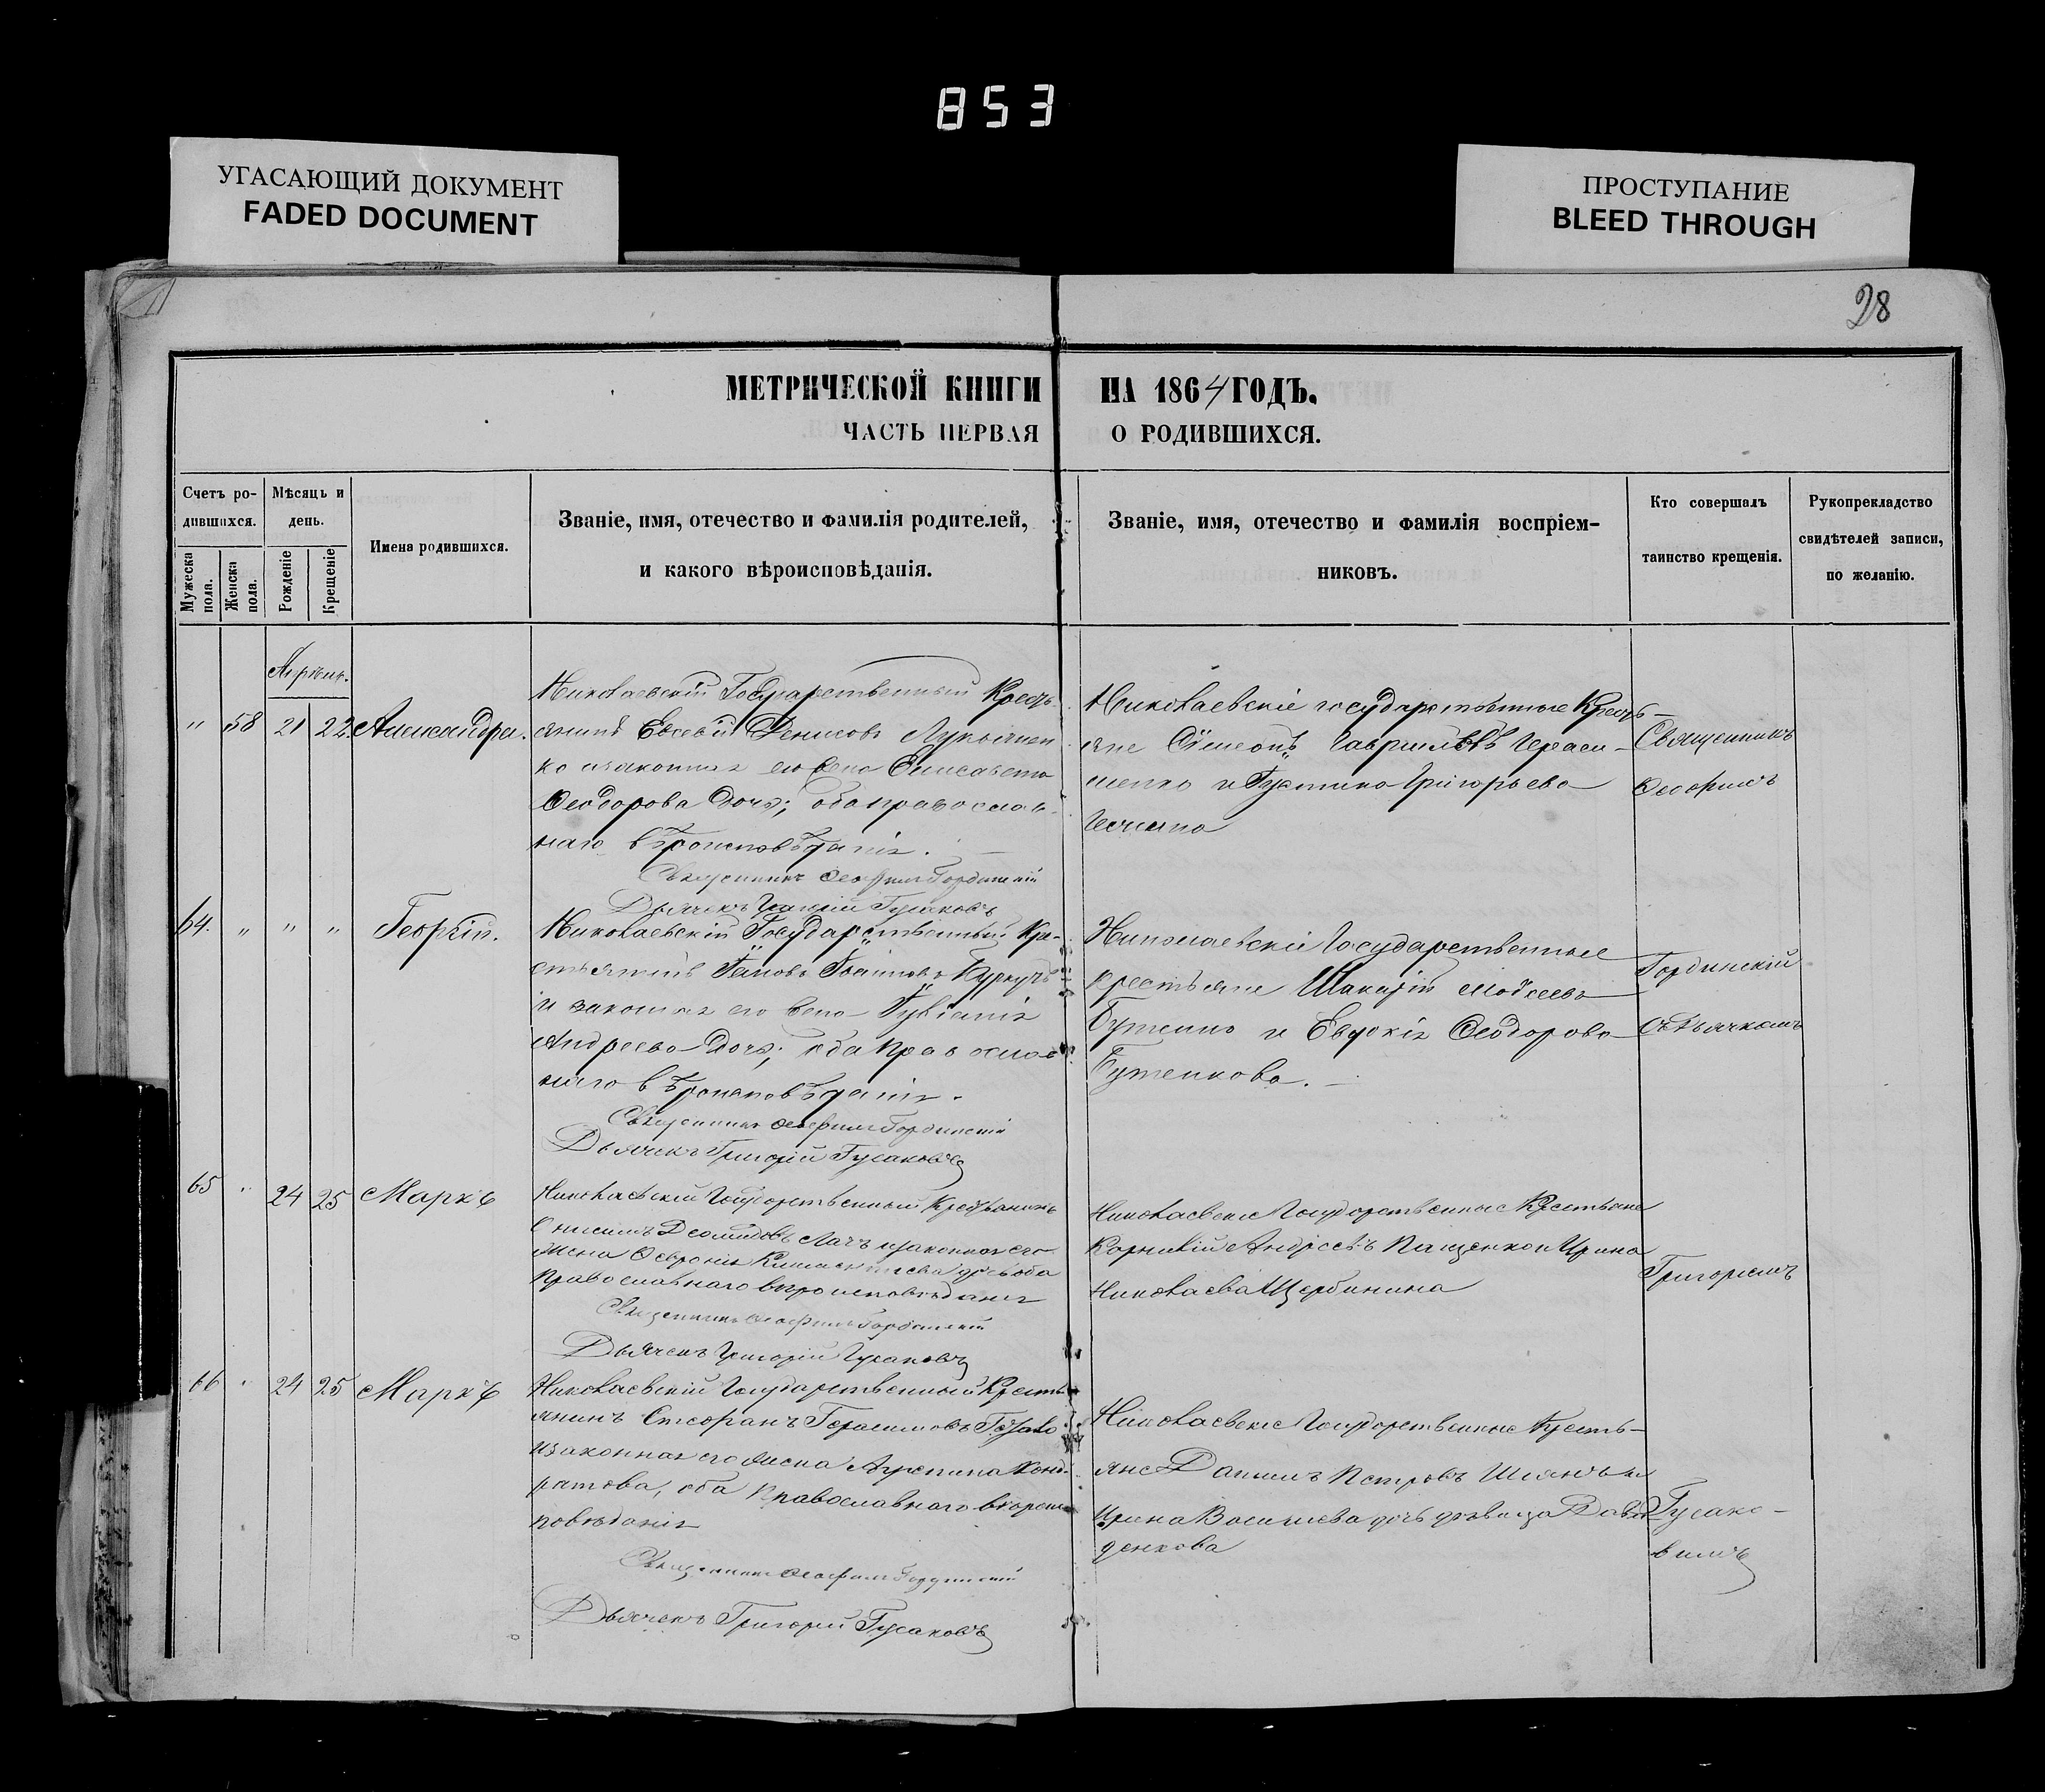 853
УГАСАЮЩИЙ ДОКУМЕНТ
FADED DOCUMENT
ПРОСТУПАНИЕ
BLEED THROUGH
28
МЕТРИЧЕСКОЙ КНИГИ НА 1864 ГОДЪ.
ЧАСТЬ ПЕРВАЯ О РОДИВШИХСЯ.
Счетъ ро-
дившихся.
Мужеска
пола.
Женска
пола.
Мѣсяць и
день.
Рожденіе
Крещеніе
Имена родившихся.
Званіе, имя, отечество и фамилія родителей,
и какого вѣроисповѣданія.
Званіе, имя, отечество и фамилія воспріем-
никовъ.
Кто совершалъ
таинство крещенія.
Рукопрекладство
свидѣтелей записи,
по желанію.
" 58 21 22 Александра.
Николаевскій Государственный Кресть-
янинъ Евсевій Денисовъ Лукьянен
ко и законная его жена Елисавета
Феодорова дочь; оба православ-
наго вѣроисповѣданія.
Священникъ Феофилъ Гординскій
Дьячекъ Григорій Гусаковъ
Николаевскіе государственные Кресть-
яне Сѵмеонъ Гавриловъ Гераси-
менко и Григорьева
Священникъ
Феофилъ
64. " " " Георгій.
Николаевскій Государственный Кре-
стьянинъ Іоанновъ
и законная его жена
Андреева дочь; оба православ-
наго вѣроисповѣданія.
Священникъ Феофилъ Гординскій
Дьячекъ Григорій Гусаковъ
Николаевскіе Государственные
крестьяне Моѵсеевъ
Бутенко и Евдокія Феодорова
Бутенкова.
Гординскій
съ Дьячкомъ
65 " 24 25 Маркъ
Николаевскій Государственный Крестьянинъ
Онисимъ Деомидовъ и законная его
жена Февронія дочь оба
Православнаго вѣроисповѣданія
Священникъ Феофилъ Гординскій
Дьячекъ Григорій Гусаковъ
Николаевскіе Государственные Крестьяне
Корнилій Андреевъ Пащенко и Ирина
Николаева Щербинина
Григоріемъ
66 " 24 25 Маркъ
Николаевскій Государственный Кресть
янинъ Стефанъ Герасимовъ
и законная его жена Агрепина Конд-
ратова, оба Православнаго вѣроис
повѣданія
Священникъ Феофилъ Гординскій
Дьячекъ Григорій Гусаковъ
Николаевскіе Государственные Кресть-
яне Даніилъ Петровъ и
Ирина Васильева дочь дѣвица Давы
денкова
Гусако-
вымъ